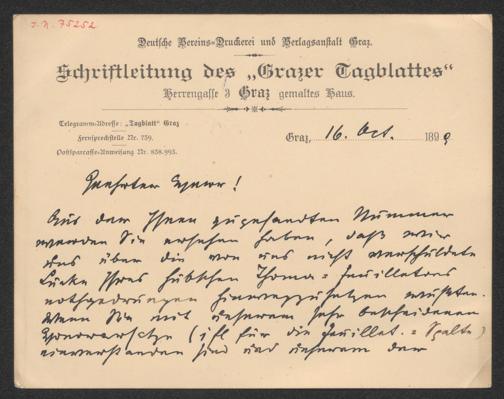 I.N. 75252
Deutsche Vereins-Druckerei und Verlagsanstalt Graz.
Schriftleitung des „Grazer Tagblattes“
Herrengasse 3 Graz gemaltes Haus.
Telegramm-Adresse: „Tagblatt“ Graz
Fernsprechstelle Nr. 759.
Postsparcasse-Anweisung Nr. 858.993.
Graz, 16. Oct. 1899
Geehrter Herr!
Aus der Ihnen zugesandten Nummer
werden Sie ersehen haben, daß wir
uns über die von uns nicht verschuldete
Lücke Ihres hübschen Thoma-Feuilletons
nothgedrungen hinwegzusetzen wußten.
Wenn Sie mit unserem sehr bescheidenen
Honorarsatze (1 fl für die Feuillet.=Spalte)
einverstanden sind und unserem der